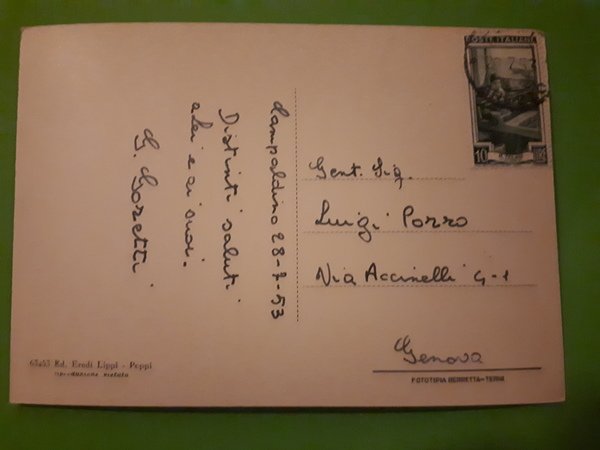 Campaldino 28-7-53
Distinti saluti
a lei e ai suoi.
G. Goretti
POSTE ITALIANE
10
Gent. Sig.
Luigi Porro
Via Accinelli 4-1
Genova
Ed. Eredi Lippi - Poppi
riproduzione vietata
FOTOTIPIA BERRETTA-TERNI